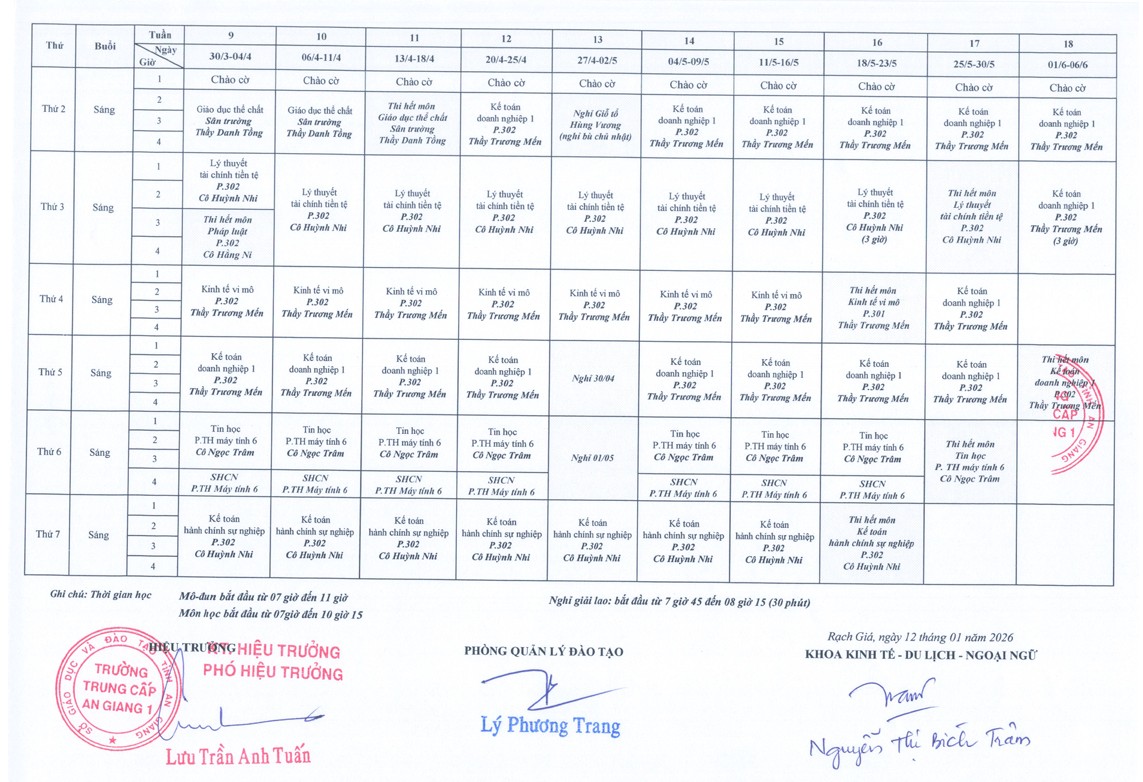 Thứ Buổi Tuần Ngày Giờ 9 10 11 12 13 14 15 16 17 18
30/3-04/4 06/4-11/4 13/4-18/4 20/4-25/4 27/4-02/5 04/5-09/5 11/5-16/5 18/5-23/5 25/5-30/5 01/6-06/6
Thứ 2 Sáng
1 Chào cờ Chào cờ Chào cờ Chào cờ Chào cờ Chào cờ Chào cờ Chào cờ Chào cờ
2
3
4
Giáo dục thể chất
Sân trường
Thầy Danh Tồng
Giáo dục thể chất
Sân trường
Thầy Danh Tồng
Thi hết môn
Giáo dục thể chất
Sân trường
Thầy Danh Tồng
Kế toán
doanh nghiệp 1
P.302
Thầy Trương Mến
Nghỉ Giỗ tổ
Hùng Vương
(nghỉ bù chủ nhật)
Kế toán
doanh nghiệp 1
P.302
Thầy Trương Mến
Kế toán
doanh nghiệp 1
P.302
Thầy Trương Mến
Kế toán
doanh nghiệp 1
P.302
Thầy Trương Mến
Kế toán
doanh nghiệp 1
P.302
Thầy Trương Mến
Kế toán
doanh nghiệp 1
P.302
Thầy Trương Mến
Thứ 3 Sáng
1
2
3
4
Lý thuyết
tài chính tiền tệ
P.302
Cô Huỳnh Nhi
Thi hết môn
Pháp luật
P.302
Cô Hằng Ni
Lý thuyết
tài chính tiền tệ
P.302
Cô Huỳnh Nhi
Lý thuyết
tài chính tiền tệ
P.302
Cô Huỳnh Nhi
Lý thuyết
tài chính tiền tệ
P.302
Cô Huỳnh Nhi
Lý thuyết
tài chính tiền tệ
P.302
Cô Huỳnh Nhi
Lý thuyết
tài chính tiền tệ
P.302
Cô Huỳnh Nhi
Lý thuyết
tài chính tiền tệ
P.302
Cô Huỳnh Nhi
Lý thuyết
tài chính tiền tệ
P.302
Cô Huỳnh Nhi
(3 giờ)
Thi hết môn
Lý thuyết
tài chính tiền tệ
P.302
Cô Huỳnh Nhi
Kế toán
doanh nghiệp 1
P.302
Thầy Trương Mến
(3 giờ)
Thứ 4 Sáng
1
2
3
4
Kinh tế vi mô
P.302
Thầy Trương Mến
Kinh tế vi mô
P.302
Thầy Trương Mến
Kinh tế vi mô
P.302
Thầy Trương Mến
Kinh tế vi mô
P.302
Thầy Trương Mến
Kinh tế vi mô
P.302
Thầy Trương Mến
Kinh tế vi mô
P.302
Thầy Trương Mến
Kinh tế vi mô
P.302
Thầy Trương Mến
Thi hết môn
Kinh tế vi mô
P.301
Thầy Trương Mến
Kế toán
doanh nghiệp 1
P.302
Thầy Trương Mến
Thứ 5 Sáng
1
2
3
4
Kế toán
doanh nghiệp 1
P.302
Thầy Trương Mến
Kế toán
doanh nghiệp 1
P.302
Thầy Trương Mến
Kế toán
doanh nghiệp 1
P.302
Thầy Trương Mến
Kế toán
doanh nghiệp 1
P.302
Thầy Trương Mến
Nghỉ 30/04
Kế toán
doanh nghiệp 1
P.302
Thầy Trương Mến
Kế toán
doanh nghiệp 1
P.302
Thầy Trương Mến
Kế toán
doanh nghiệp 1
P.302
Thầy Trương Mến
Kế toán
doanh nghiệp 1
P.302
Thầy Trương Mến
Thi hết môn
Kế toán
doanh nghiệp 1
P.302
Thầy Trương Mến
CẤP
NG 1
AN GIANG
Thứ 6 Sáng
1
2
3
4
Tin học
P.TH máy tính 6
Cô Ngọc Trâm
SHCN
P.TH Máy tính 6
Tin học
P.TH máy tính 6
Cô Ngọc Trâm
SHCN
P.TH Máy tính 6
Tin học
P.TH máy tính 6
Cô Ngọc Trâm
SHCN
P.TH Máy tính 6
Tin học
P.TH máy tính 6
Cô Ngọc Trâm
SHCN
P.TH Máy tính 6
Nghỉ 01/05
Tin học
P.TH máy tính 6
Cô Ngọc Trâm
SHCN
P.TH Máy tính 6
Tin học
P.TH máy tính 6
Cô Ngọc Trâm
SHCN
P.TH Máy tính 6
Tin học
P.TH máy tính 6
Cô Ngọc Trâm
SHCN
P.TH Máy tính 6
Thi hết môn
Tin học
P. TH máy tính 6
Cô Ngọc Trâm
Thứ 7 Sáng
1
2
3
4
Kế toán
hành chính sự nghiệp
P.302
Cô Huỳnh Nhi
Kế toán
hành chính sự nghiệp
P.302
Cô Huỳnh Nhi
Kế toán
hành chính sự nghiệp
P.302
Cô Huỳnh Nhi
Kế toán
hành chính sự nghiệp
P.302
Cô Huỳnh Nhi
Kế toán
hành chính sự nghiệp
P.302
Cô Huỳnh Nhi
Kế toán
hành chính sự nghiệp
P.302
Cô Huỳnh Nhi
Kế toán
hành chính sự nghiệp
P.302
Cô Huỳnh Nhi
Thi hết môn
Kế toán
hành chính sự nghiệp
P.302
Cô Huỳnh Nhi
Ghi chú: Thời gian học Mô-đun bắt đầu từ 07 giờ đến 11 giờ Nghỉ giải lao: bắt đầu từ 7 giờ 45 đến 08 giờ 15 (30 phút)
Môn học bắt đầu từ 07giờ đến 10 giờ 15
Rạch Giá, ngày 12 tháng 01 năm 2026
HIỆU TRƯỞNG KT HIỆU TRƯỞNG PHÒNG QUẢN LÝ ĐÀO TẠO KHOA KINH TẾ - DU LỊCH - NGOẠI NGỮ
PHÓ HIỆU TRƯỞNG
SỞ GIÁO DỤC VÀ ĐÀO TẠO TỈNH AN GIANG
TRƯỜNG
TRUNG CẤP
AN GIANG 1
Lưu Trần Anh Tuấn
Lý Phương Trang
Nguyễn Thị Bích Trâm